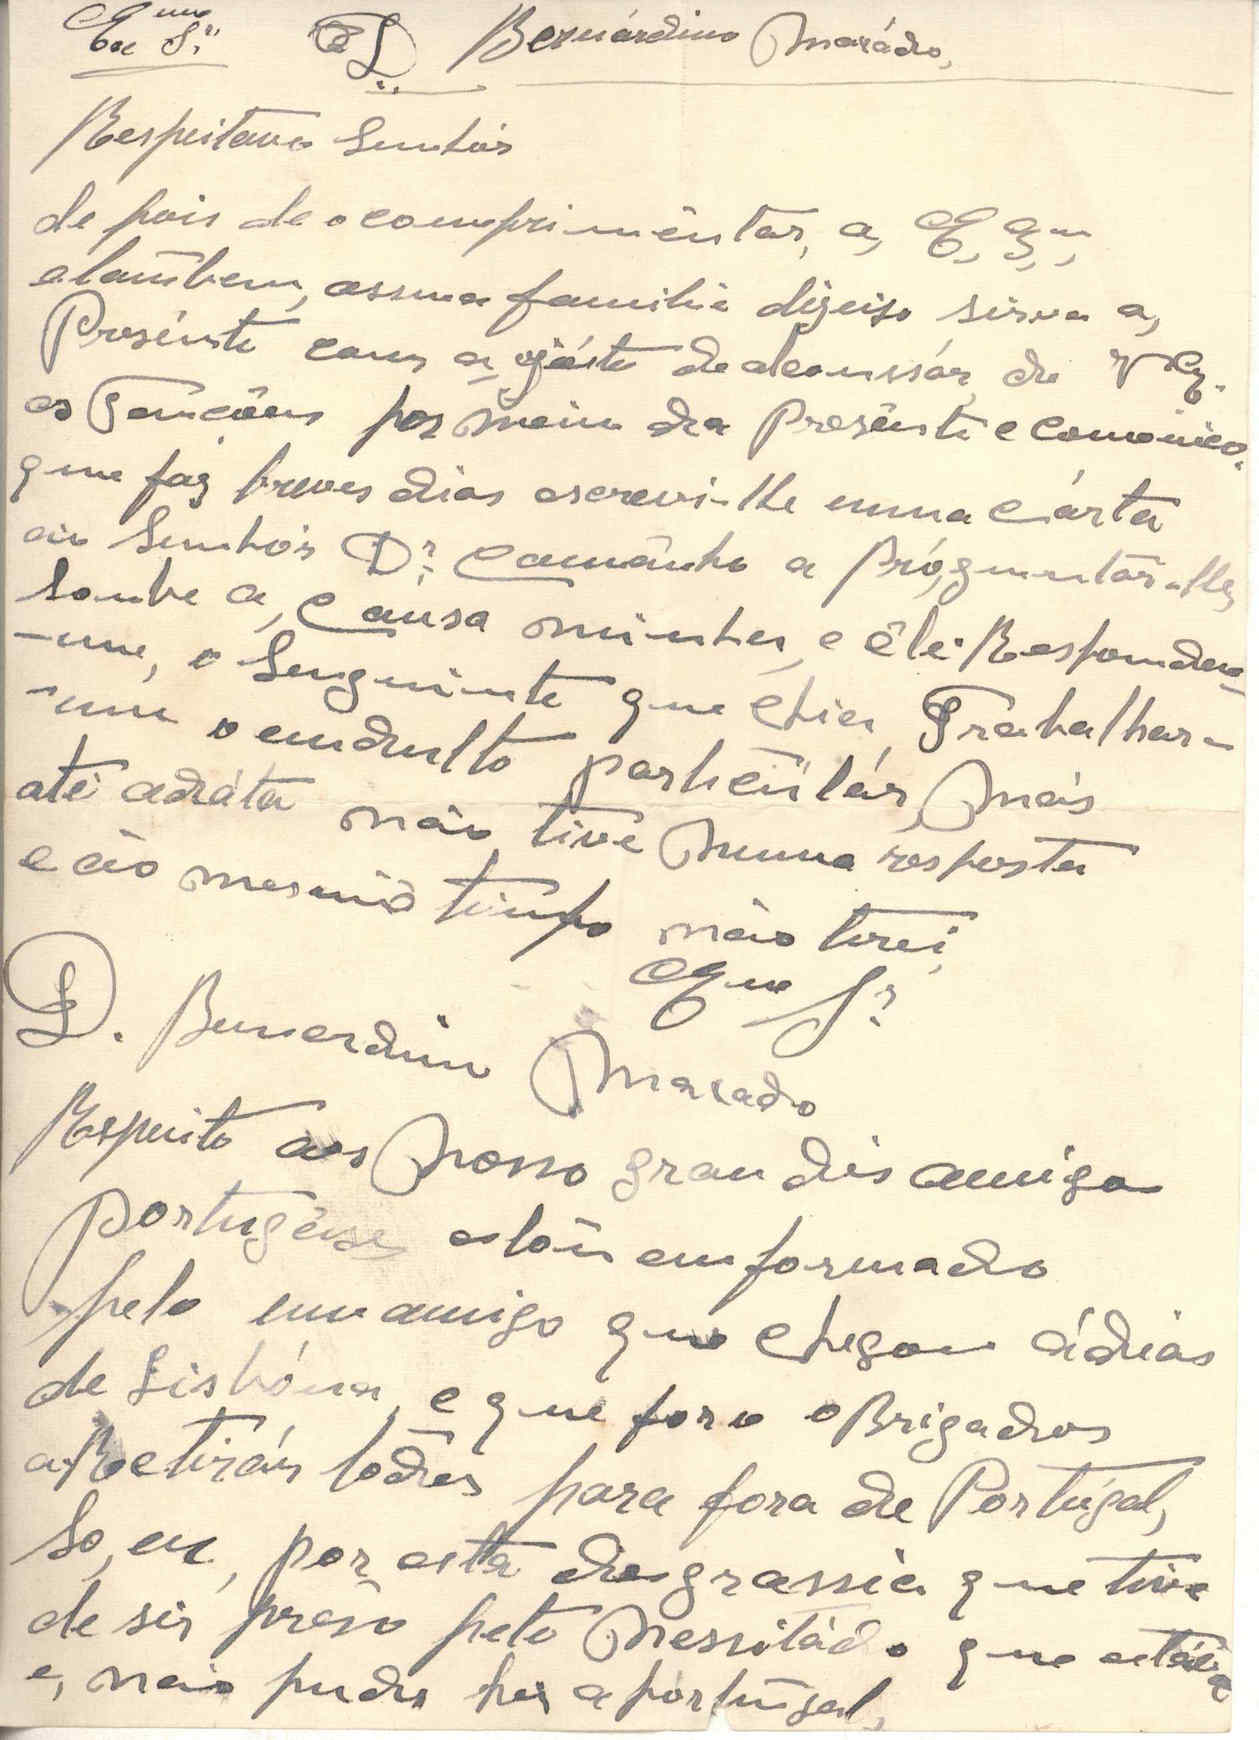 Exmo Sr. D. Bernárdino Marádo,
Respeitavo Senhór
de pois de o comprimêntar, a,
e também, assua familia digeiso sirva a,
Presênte com a, de V Ex.
as por meiu da Presênte e comonico.
que faz breves dias escrevi-lhe uma cárta
áo Senhór Dr. Camânho a
Sonbe a, Causa minha, e êle Respondeu-
-me, o Senguinte que Trabalhar-
-me o endulto particulár, mas
até adráta não, tive Nunna resposta
e ão mesmo tempo não tirei,
Exmo Sr.
D. Bunerdino Marado
Respeito aos Nosso grandis amigo
Portugêses estou enformado
pelo um amigo que chegou ádias
de Lisbóna, e que foro o Brigados
a Retirár tôdos para fora de Portúgal,
So, eu, por esta desgrassia que tive
de sir prêso pelo Nessitádo que estáva
e, não pude hir a portúgal,